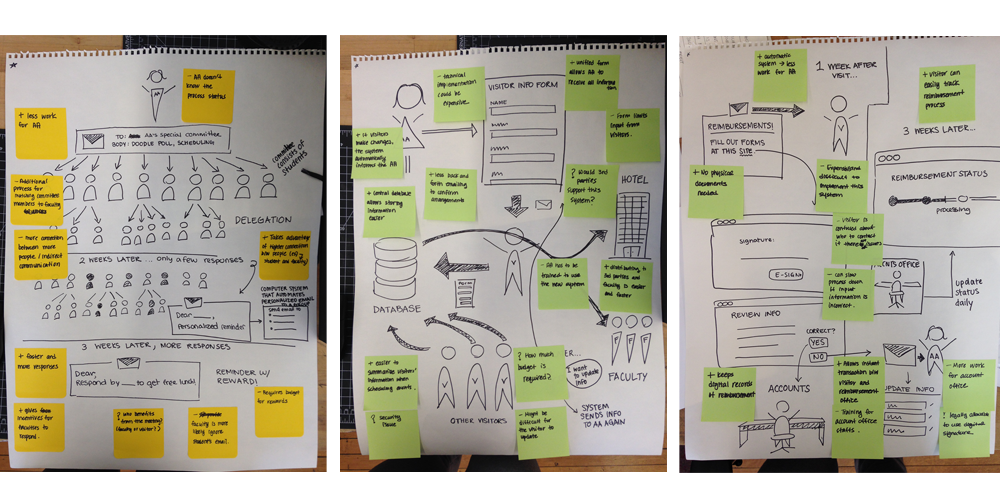 - AA doesn't
know the
process status
+ less work
for AA
AA
TO: AA's special committee
BODY: DOODLE POLL, SCHEDULING
committee
consists of
students
- Additional
process for
matching committee
members to faculty
DELEGATION
- more connection
between more
people / indirect
communication
+ Takes advantage
of
connection
btw people
student and faculty)
2 WEEKS LATER ... only a few responses
COMPUTER SYSTEM
THAT AUTOMATES
PERSONALIZED EMAILS
send email to
Dear ___,
personalized reminder
3 WEEKS LATER, MORE RESPONSES
+ faster and
more responses
Dear,
Respond by ___ to get free lunch!
REMINDER W/
REWARD!
- Requires budget
for rewards
+ gives
incentives for
faculties to
respond.
? who benefits
from the meeting?
(faculty or visitor?)
faculty is more
likely ignore
students email.
- technical
implementation
could be
expensive.
- unified form
allows AA to
receive all informa
tion
VISITOR INFO FORM
NAME
- Form limits
input from
visitors.
AA
+ if visitors
make changes,
the system
automatically
informs the AA
+ less back and
forth emailing
to confirm
arrangements
? Would 3rd
parties
support this
system?
HOTEL
+ Central database
allows storing
information
easier
- AA has to be
trained to use
the new system
+ distributing to
3rd parties
and faculty is easier
and faster
DATABASE
F F F
FACULTY
+ easier to
summarize visitors'
information when
scheduling events.
? How much
budget is
required?
I want
to update
info
? Security
issue
OTHER VISITORS
- Might be
difficult for
the visitor to
update
SYSTEM
SENDS INFO
TO AA AGAIN
+ automatic
system → less
work for AA
1 WEEK AFTER
VISIT...
+ visitor can
easily track
reimbursement
process
V
REIMBURSEMENTS!
FILL OUT FORMS
AT THIS SITE
3 WEEKS LATER...
REIMBURSEMENT STATUS
+ No physical
documents
needed.
- Expensive and
difficult to
implement this
system
processing
- visitor is
confused about
who to contact
if there
signature:
E-SIGN
- can slow
process down
if input
information is
incorrect.
NTS OFFICE
update
status
daily
REVIEW INFO
CORRECT?
YES
NO
AA
+ Keeps
digital records
of reimbursement
+ Allows instant
transaction btw
visitor and
reimbursement
office
- More work
for account
office.
ACCOUNTS
- Training for
account office
staffs.
UPDATE INFO
! legally allowable
to use digital
signature.